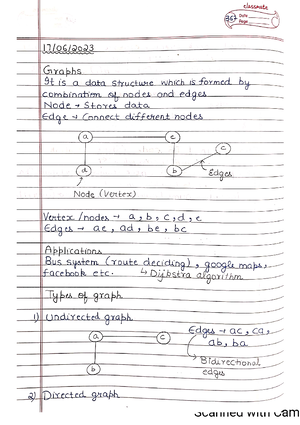 classmate
Date
Page
17/06/2023
Graphs
It is a data structure which is formed by
combination of nodes and edges
Node → Stores data
Edge → Connect different nodes
a e c
d b Edges
Node (Vertex)
Vertex / nodes → a, b, c, d, e
Edges → ae, ad, be, bc
Applications
Bus system (route deciding), google maps,
facebook etc. ↳ Dijbstra algorithm
Types of graph
1) Undirected graph
a c Edges → ac, ca,
ab, ba
b Bidirectional
edges
2) Directed graph
Scanned with Cam